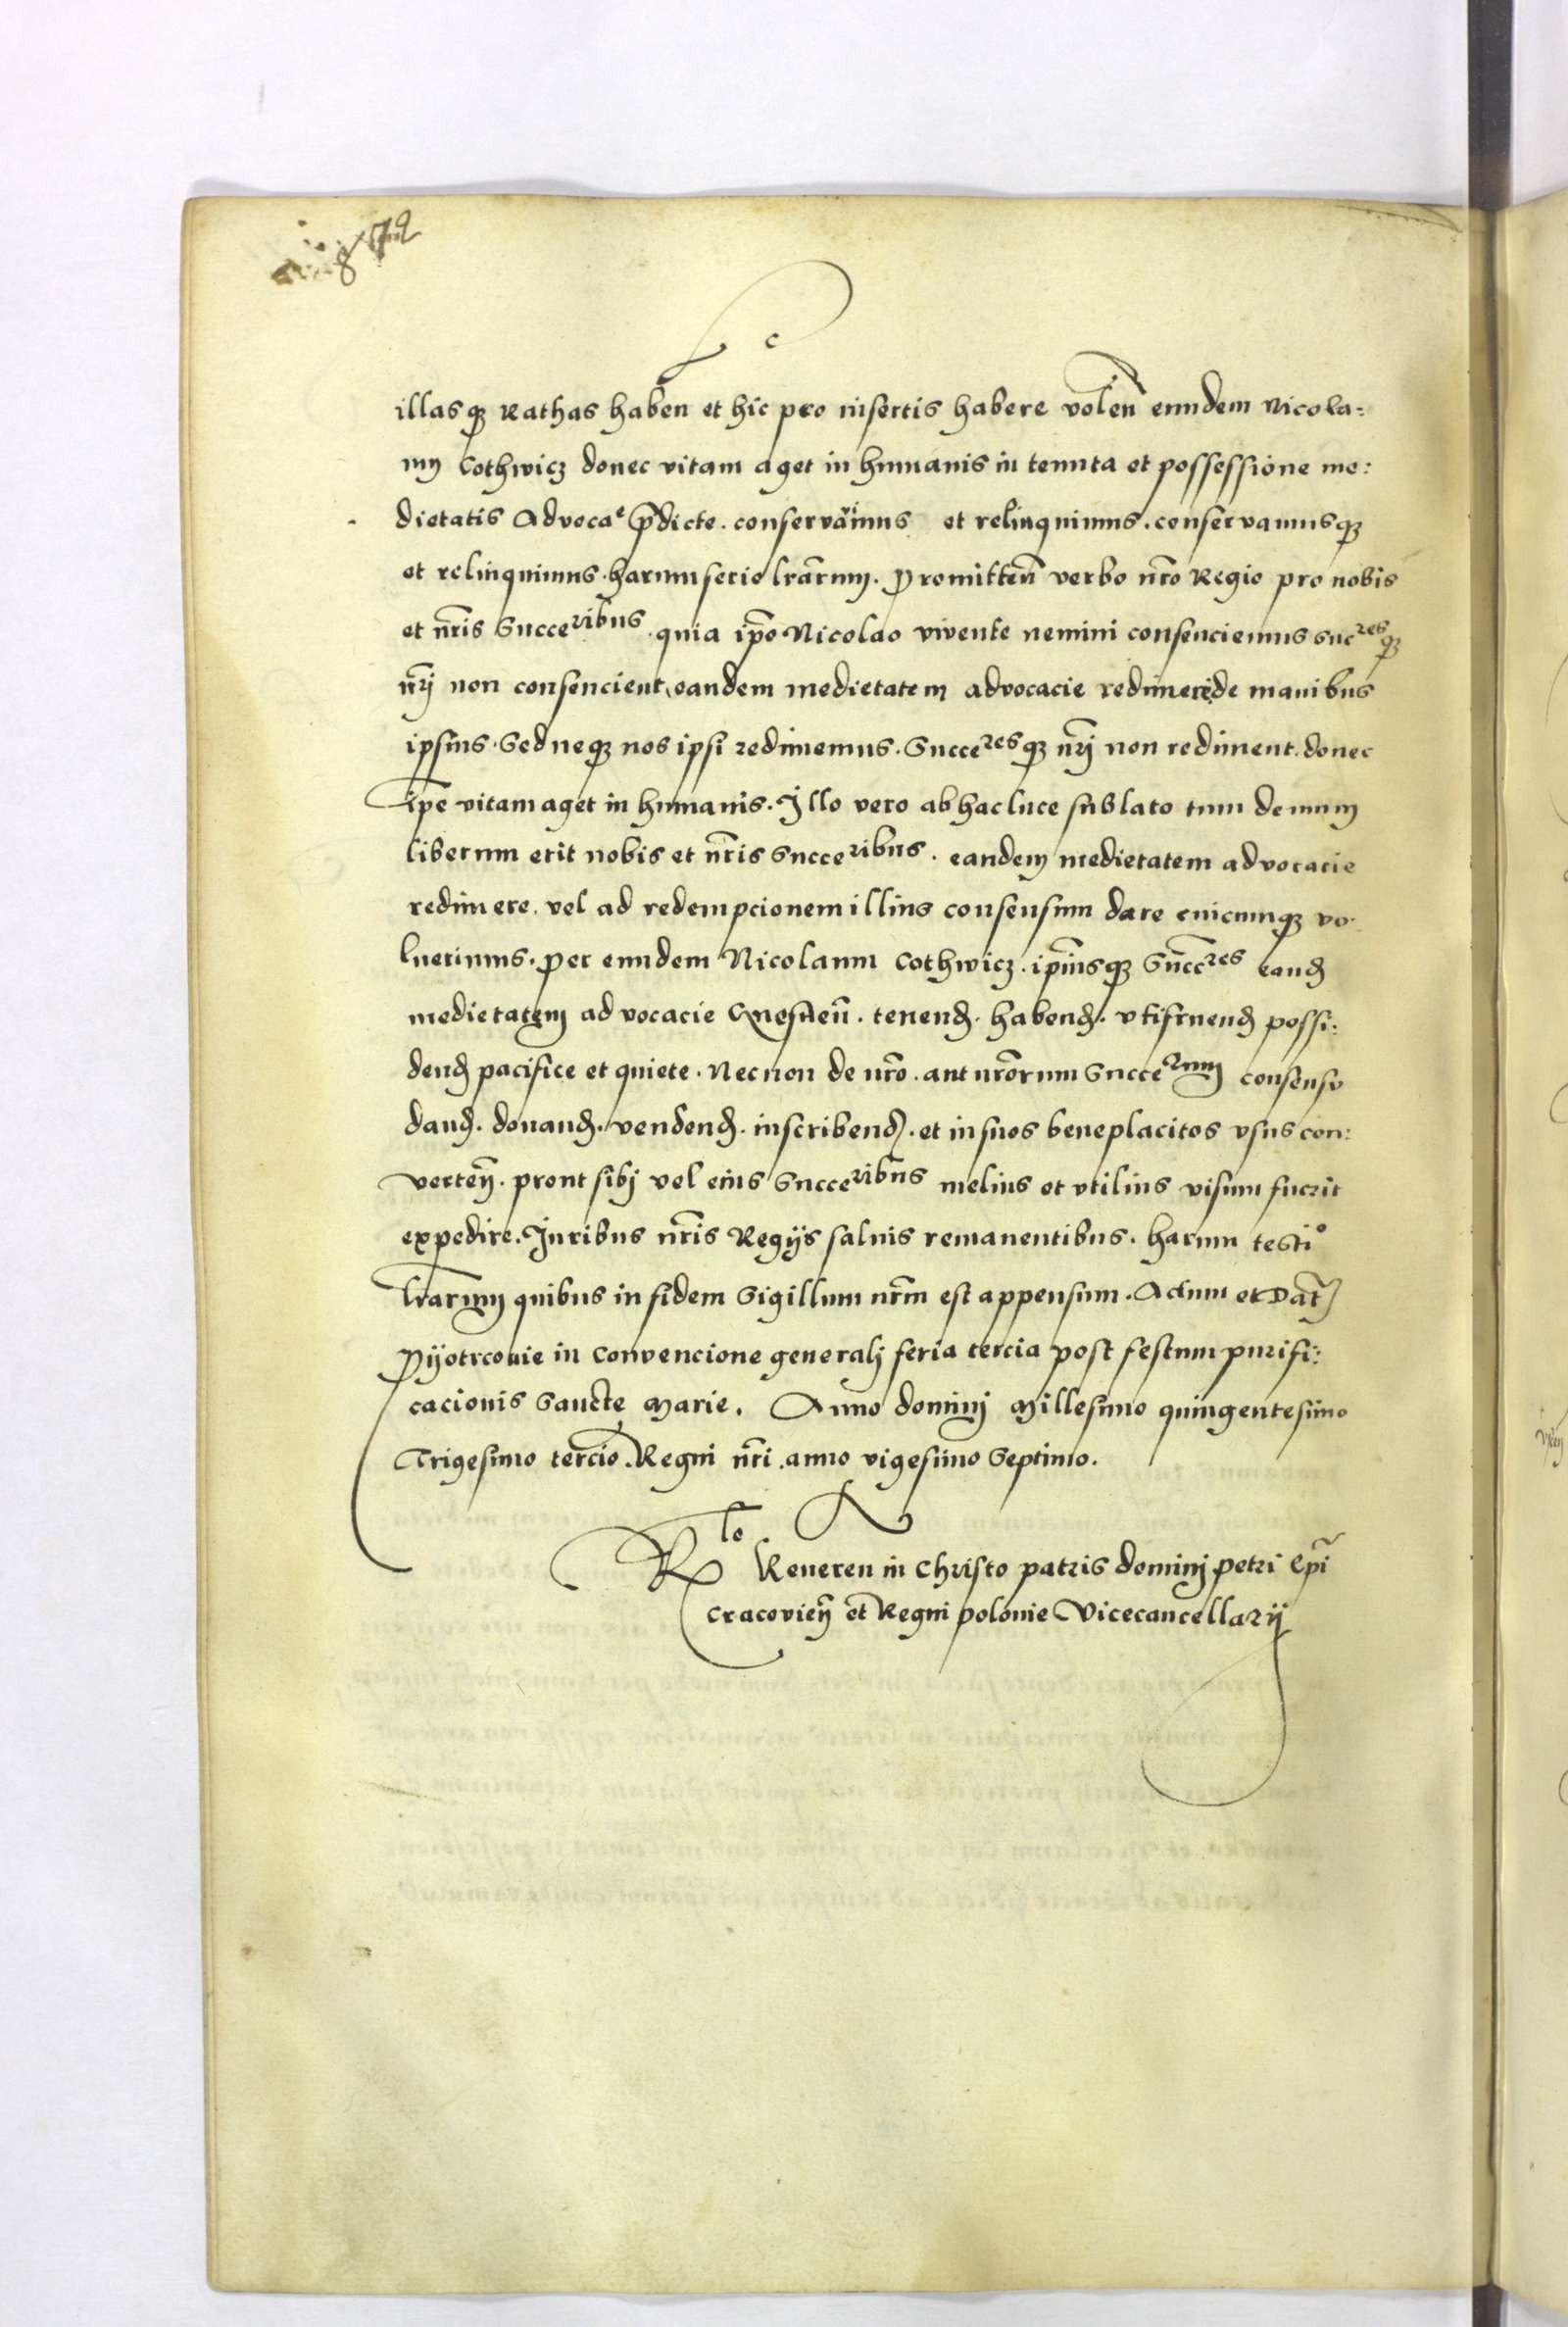 illasq3 Rathas haben̄ et hic pro insertis habere volen̄ eundem Nicola=
um Cothwicz donec vitam aget in humanis in tenuta et possessione me:
dietatis Advocae p̄dicte. conservavimus et relinquimus. conservamusq3
et relinquimus. harum serie lr̄arum. Promitten̄ verbo nr̄o Regio pro nobis
et nr̄is Succeribus. quia ip̄o Nicolao vivente nemini consenciemus sucresq3
nr̄j non consencient, eandem medietatem advocacie redimere de manibus
ipsius. Sed neq3 nos ipsi redimemus. Succeresq3 nr̄j non rediment. donec
ip̄e vitam aget in humanis. Illo vero ab hac luce sublato tum demum
liberum erit nobis et nr̄is Succeribus. eandem medietatem advocacie
redimere. vel ad redempcionem illius consensum dare cuicunq3 vo.
luerimus. per eundem Nicolaum Cothwicz. ip̄iusq3 Succres eand
medietatem advocacie Qnesnen̄. tenend. habend. utifruend possi:
dend pacifice et quiete. Necnon de nr̄o. aut nr̄orum Succerum consensu
dand. donand. vendend. inscribend. et in suos beneplacitos usus con:
verten̄. prout sibj vel eius Succeribus melius et utilius visum fuerit
expedire. Iuribus nr̄is Regijs salvis remanentibus. harum testio
lr̄arum quibus in fidem Sigillum nr̄m est appensum. Actum et Dat̄
Pijotrcovie in Convencione generalj feria tercia post festum purifi:
cacionis Sancte Marie. Anno dominj Millesimo quingentesimo
Trigesimo tercio. Regni nr̄i. anno vigesimo Septimo.
Rlo Reveren in Christo patris dominj petri Ep̄i
Cracovien̄ et Regni polonie Vicecancellarij